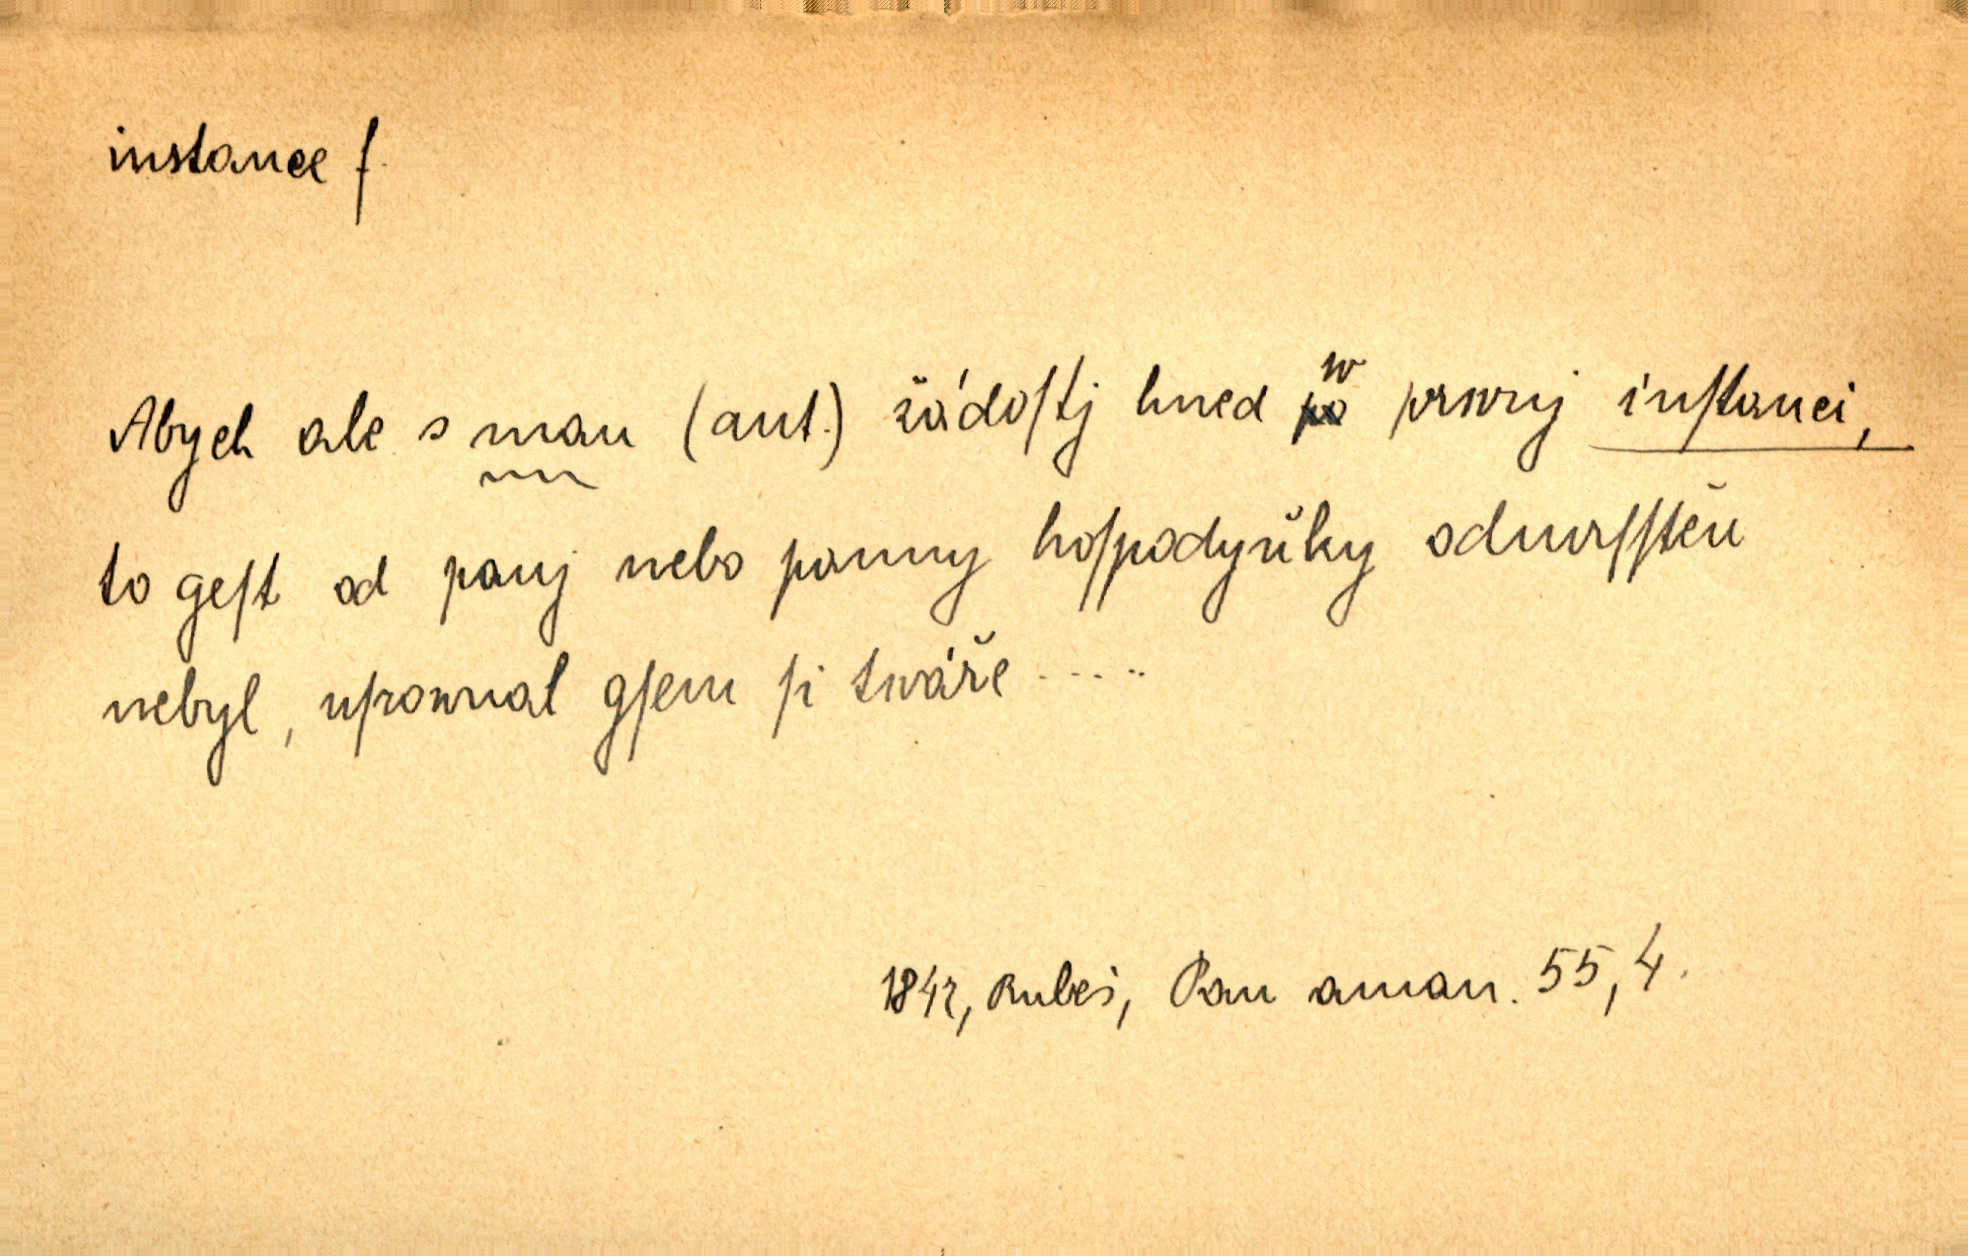 instance f.
Abych ale s mau (aut.) žádoſtj hned w prwnj inſtanci,
to geſt od panj nebo panny hoſpodyňky odmrſſtěn
nebyl, uſrownal gſem ſi twáře .....
1842, Rubeš, Pan aman. 55,4.